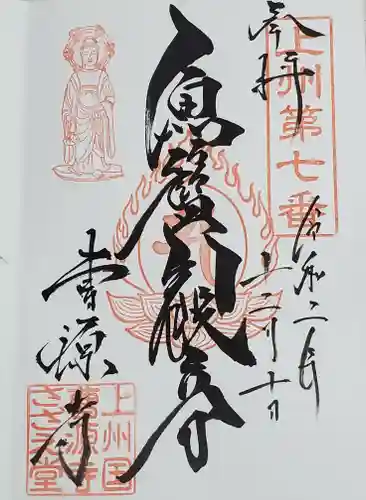 奉拝
上州第七番
令和二年
十二月十日
魚籃観音
曹源寺
上州国
曹源寺
さざえ堂